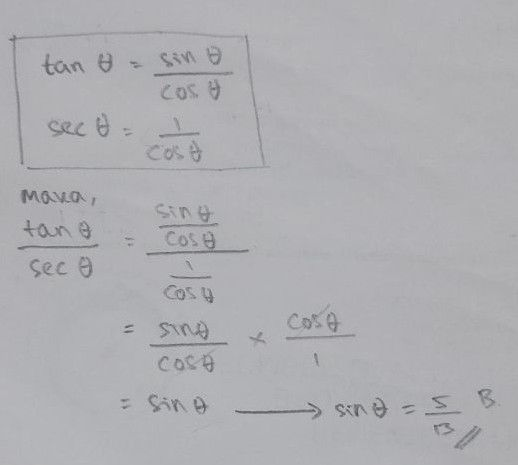 tan θ = sin θ / cos θ
sec θ = 1 / cos θ
maka,
tan θ / sec θ = (sin θ / cos θ) / (1 / cos θ)
= sin θ / cos θ × cos θ / 1
= sin θ ⟶ sin θ = 5 / 13 B.